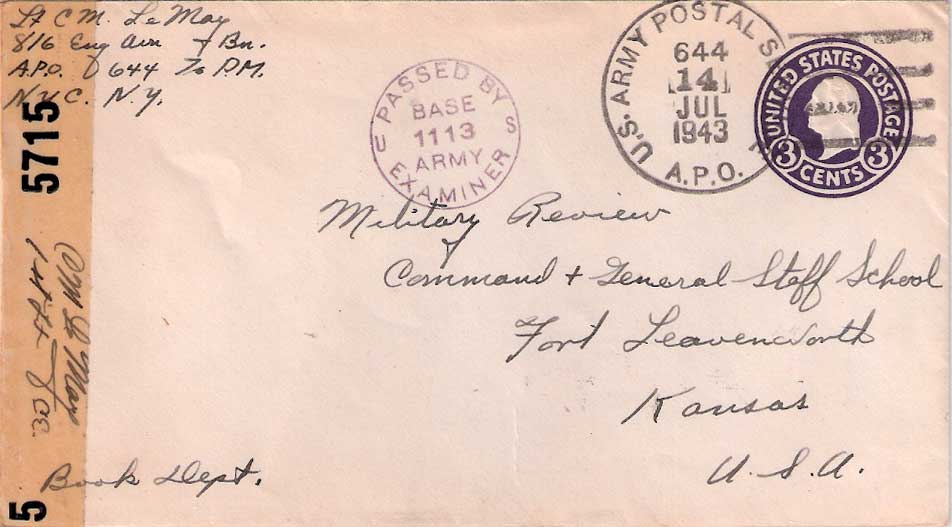 Lt C M. LeMay
816 Eng Avn Bn.
A.P.O. 644 % P.M.
N.Y.C. N.Y.
PASSED BY
BASE
1113
ARMY
EXAMINER
U S
U.S. ARMY POSTAL
644
14
JUL
1943
A.P.O.
UNITED STATES POSTAGE
3 CENTS 3
Military Review
Command + General Staff School
Fort Leavenworth
Kansas
U.S.A.
Book Dept.
5715
C M Le May
1st Lt
5